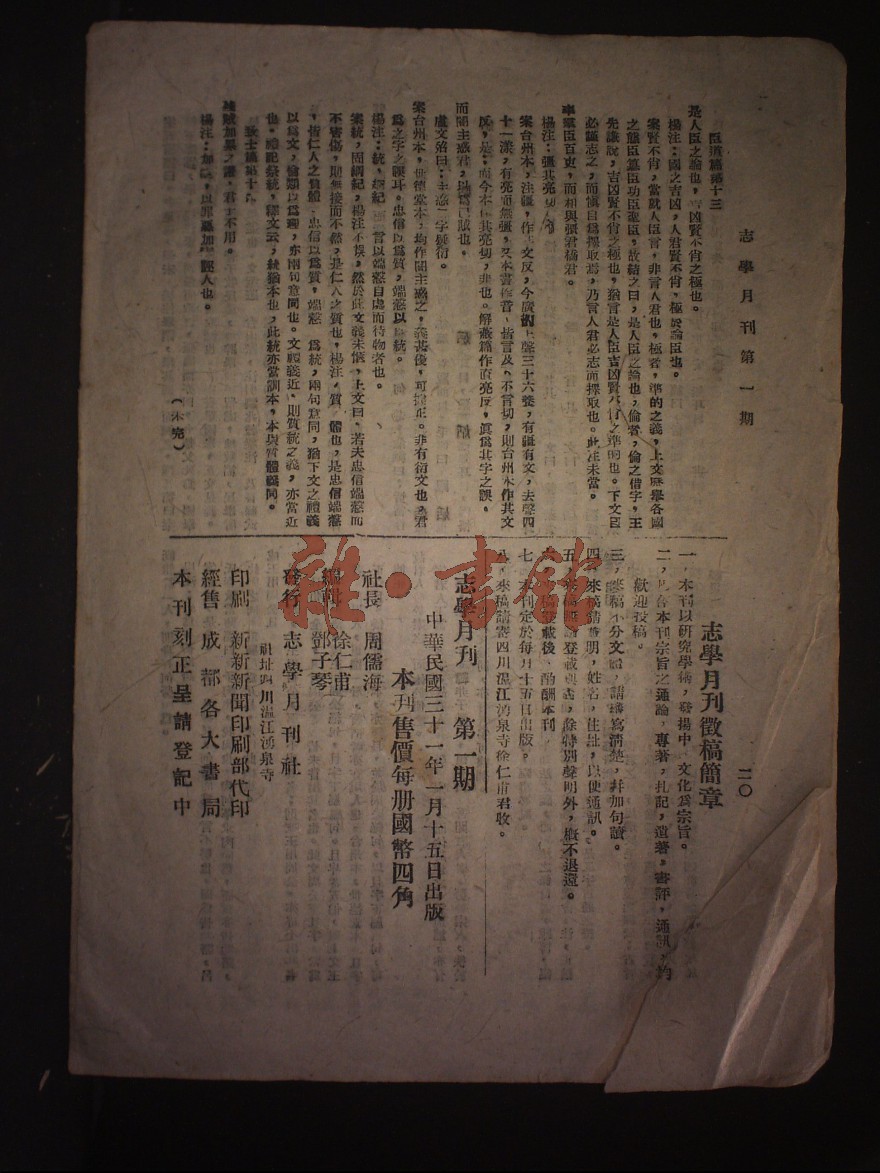 志學月刊第一期
二〇
臣道篇第十三
是人臣之論也，吉凶賢不肖之極也。
楊注：國之吉凶，人君賢不肖，極於論臣也。
案賢不肖，當就人臣言，非言人君也。極者，準的之義，上文歷舉各國
之態臣篡臣功臣聖臣，故結之曰，是人臣之論也，倫者，倫之借字，王
先謙說，吉凶賢不肖之極也，猶言是人臣吉凶賢不肖之準的也。下文曰
必謹志之，而慎自爲擇取焉，乃言人君必志而擇取也。此注未當。
率羣臣百吏，而相與彊君橋君。
楊注：彊其亮切
案台州本，注彊，作其文反，今廣韻上聲三十六養，有彊有文，去聲四
十一漾，有亮而無彊，
反，是；而今本作其亮切，非也。解蔽篇作直亮反，直爲其字之誤。
而闇主惑君，以爲己賊也。
盧文弨曰：主惑二字疑衍。
案台州本，世德堂本，均作闇主惑之，義甚優，可據正。非有衍文也，君
爲之字之誤耳。忠信以爲質，端慤以爲統。
楊注：統，綱紀 言以端慤自處而待物者也。
案統，固綱紀，楊注不誤，然於此文義未愜，上文曰，若夫忠信端慤而
不害傷，則無接而不然，是仁人之質也，楊注，質，體也，是忠信端慤
，皆仁人之質體，忠信以爲質，端慤以爲統，兩句意同，猶下文之禮義
以爲文，倫類以爲理，亦兩句意同也。文理義近，則質統之義，亦當近
也，禮記祭統，釋文云，統猶本也，此統亦當訓本，本與質體義同。
致士篇第十六
殘賊加累之譖，君子不用。
楊注：加累，以罪惡加累誣人也。
（未完）
志學月刊徵稿簡章
一，本刊以研究學術，發揚中國文化爲宗旨。
二，凡合本刊宗旨之通論，專著，扎記，遺著，書評，通訊，均
歡迎投稿。
三，來稿不分文體，請繕寫清楚，幷加句讀。
四，來稿請書明，姓名，住址，以便通訊。
五，來稿無論登載與否，除特別聲明外，概不退還。
六，來稿登載後，酌酬本刊
七，本刊定於每月十五日出版。
八，來稿請寄四川溫江湧泉寺徐仁甫君收。
志學月刊 第一期
中華民國三十一年一月十五日出版
本刋售價每册國幣四角
社長 周儒海
編輯 徐仁甫
鄧子琴
發行 志學月刊社
社址四川溫江湧泉寺
印刷 新新新聞印刷部代印
經售 成都各大書局
本刊刻正呈請登記中
雜·書館